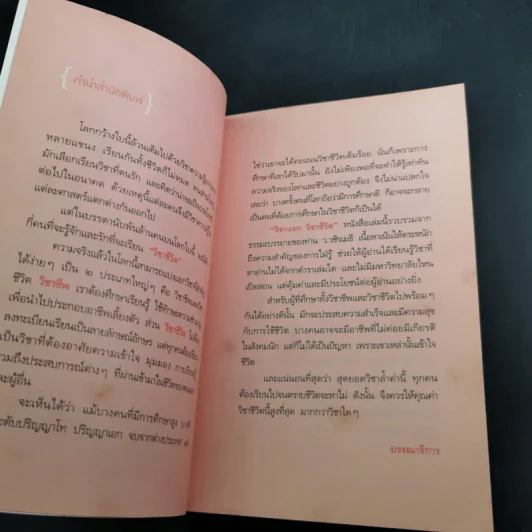 {คำนำสำนักพิมพ์}
โลกกว้างใบนี้ล้วนเต็มไปด้วยวิชาความรู้
หลายแขนง เรียนกันทั้งชีวิตก็ไม่หมด
มักเลือกเรียนวิชาที่ตนรัก และคิดว่าน่าจะเป็น
ต่อไปในอนาคต ด้วยเหตุนี้แต่ละคนจึงมีวิชาความรู้
แต่ละศาสตร์แตกต่างกันออกไป
แต่ในบรรดานับพันล้านคนบนโลกใบนี้
ที่คนที่จะรู้จักและรักที่จะเรียน "วิชาชีวิต"
ความจริงแล้วในโลกนี้สามารถแบ่งแยกวิชา
ได้ง่ายๆ เป็น ๒ ประเภทใหญ่ๆ คือ วิชาชีพและวิชา
ชีวิต วิชาชีพ เราต้องศึกษาเรียนรู้ ใช้ทักษะความ
เพื่อนำไปประกอบอาชีพเลี้ยงตัว ส่วน วิชาชีวิต
ลงทะเบียนเรียนเป็นลายลักษณ์อักษร แต่ทุกคนต้อง
เป็นวิชาที่ต้องอาศัยความเข้าใจ มุมมอง การเรียนรู้
รวมถึงประสบการณ์ต่างๆ ที่ผ่านเข้ามาในชีวิตของตนเอง
และผู้อื่น
จะเห็นได้ว่า แม้บางคนที่มีการศึกษาสูง บางที
ระดับปริญญาโท ปริญญาเอก จบจากต่างประเทศ แต่
ใช่ว่าเขาจะได้คะแนนวิชาชีวิตเต็มร้อย นั่นก็เพราะการ
ศึกษาที่เขาได้รับมานั้น ยังไม่เพียงพอที่จะทำให้รู้เท่าทัน
ความจริงของโลกและชีวิตอย่างถูกต้อง จึงไม่น่าแปลกใจ
เลยว่า บางครั้งคนที่โลกถือว่ามีการศึกษาดี ก็อาจจะกลาย
เป็นคนที่ด้อยการศึกษาในวิชาชีวิตก็เป็นได้
"วิชาแรก วิชาชีวิต" หนังสือเล่มนี้รวบรวมจาก
ธรรมะบรรยายของท่าน ว.วชิรเมธี เนื้อหาเน้นให้ตระหนัก
ถึงความสำคัญของการใฝ่รู้ ช่วยให้ผู้อ่านได้เรียนรู้วิชาที่
หาอ่านไม่ได้จากตำราเล่มใด และไม่มีมหาวิทยาลัยไหน
เปิดสอน แต่คุ้มค่าและมีประโยชน์ต่อผู้อ่านอย่างยิ่ง
สำหรับผู้ที่ศึกษาทั้งวิชาชีพและวิชาชีวิตไปพร้อมๆ
กันได้อย่างดีนั้น มักจะประสบความสำเร็จและมีความสุข
กับการใช้ชีวิต บางคนอาจจะมีอาชีพที่ไม่ค่อยมีเกียรติ
ในสังคมนัก แต่ก็ไม่ได้เป็นปัญหา เพราะเขาเหล่านั้นเข้าใจ
ชีวิต
และแน่นอนที่สุดว่า สุดยอดวิชาล้ำค่านี้ ทุกคน
ต้องเรียนไปจนตราบชีวิตจะหาไม่ ดังนั้น จึงควรให้คุณค่า
วิชาชีวิตนี้สูงที่สุด มากกว่าวิชาใดๆ
บรรณาธิการ